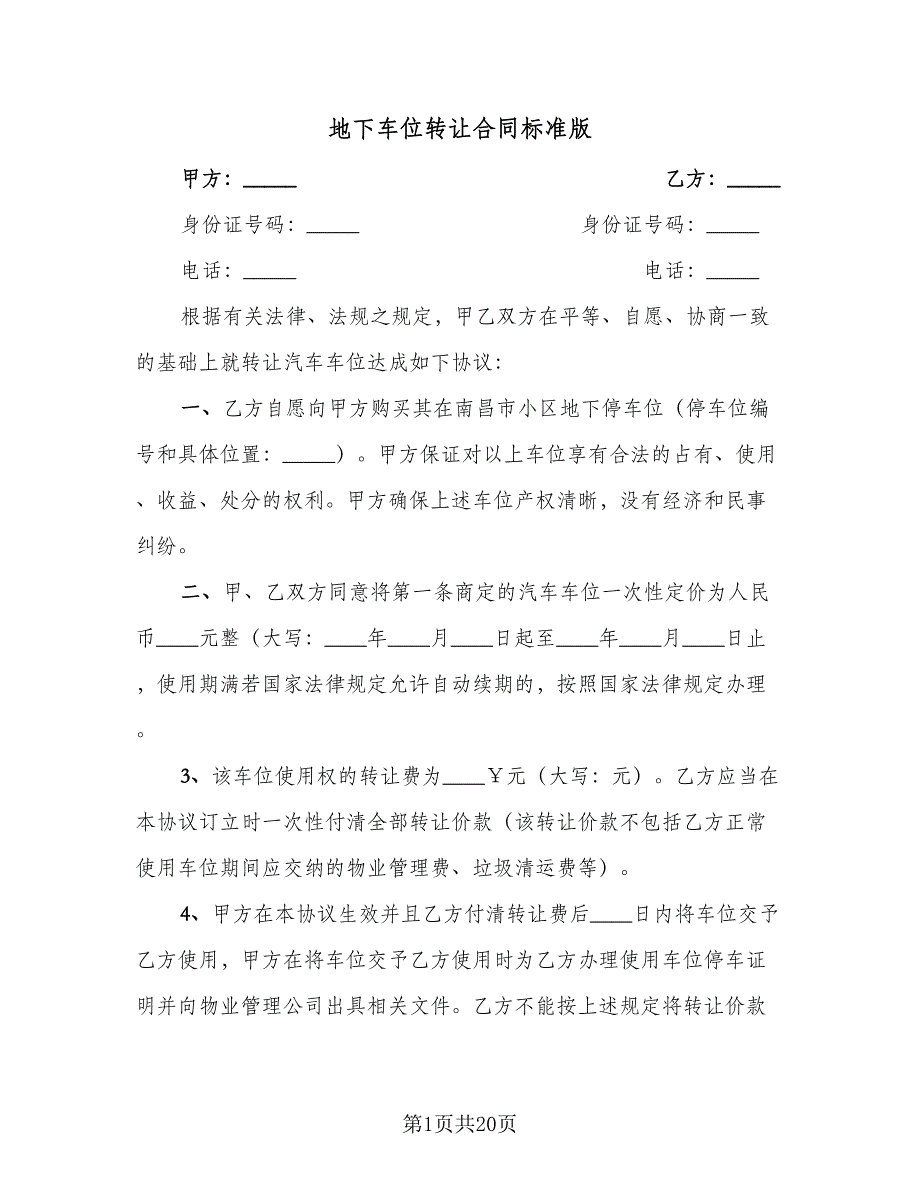 地下车位转让合同标准版
甲方：_____ 乙方：_____
身份证号码：_____ 身份证号码：_____
电话：_____ 电话：_____
根据有关法律、法规之规定，甲乙双方在平等、自愿、协商一致
的基础上就转让汽车车位达成如下协议：
一、乙方自愿向甲方购买其在南昌市小区地下停车位（停车位编
号和具体位置：_____）。甲方保证对以上车位享有合法的占有、使用
、收益、处分的权利。甲方确保上述车位产权清晰，没有经济和民事
纠纷。
二、甲、乙双方同意将第一条商定的汽车车位一次性定价为人民
币____元整（大写：____年____月____日起至____年____月____日止
，使用期满若国家法律规定允许自动续期的，按照国家法律规定办理
。
3、该车位使用权的转让费为____￥元（大写：元）。乙方应当在
本协议订立时一次性付清全部转让价款（该转让价款不包括乙方正常
使用车位期间应交纳的物业管理费、垃圾清运费等）。
4、甲方在本协议生效并且乙方付清转让费后____日内将车位交予
乙方使用，甲方在将车位交予乙方使用时为乙方办理使用车位停车证
明并向物业管理公司出具相关文件。乙方不能按上述规定将转让价款
第1页共20页